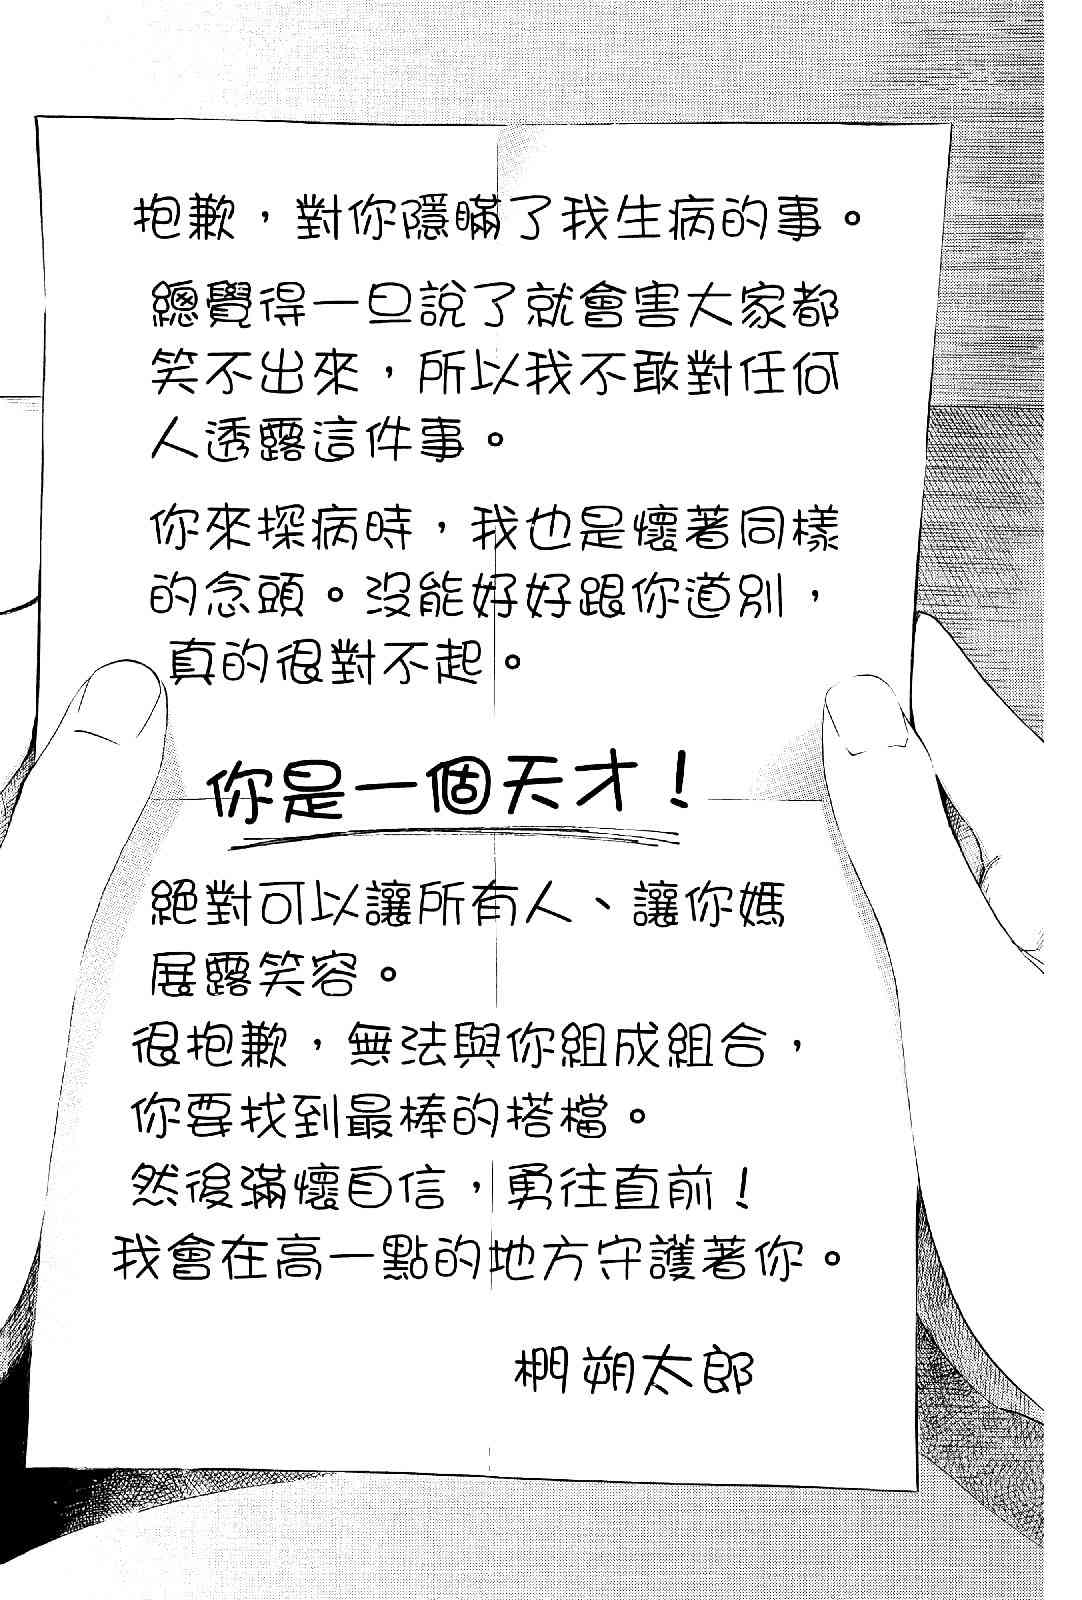 抱歉，對你隱瞞了我生病的事。
總覺得一旦說了就會害大家都
笑不出來，所以我不敢對任何
人透露這件事。
你來探病時，我也是懷著同樣
的念頭。沒能好好跟你道別，
真的很對不起。
你是一個天才！
絕對可以讓所有人、讓你媽
展露笑容。
很抱歉，無法與你組成組合，
你要找到最棒的搭檔。
然後滿懷自信，勇往直前！
我會在高一點的地方守護著你。
椚朔太郎